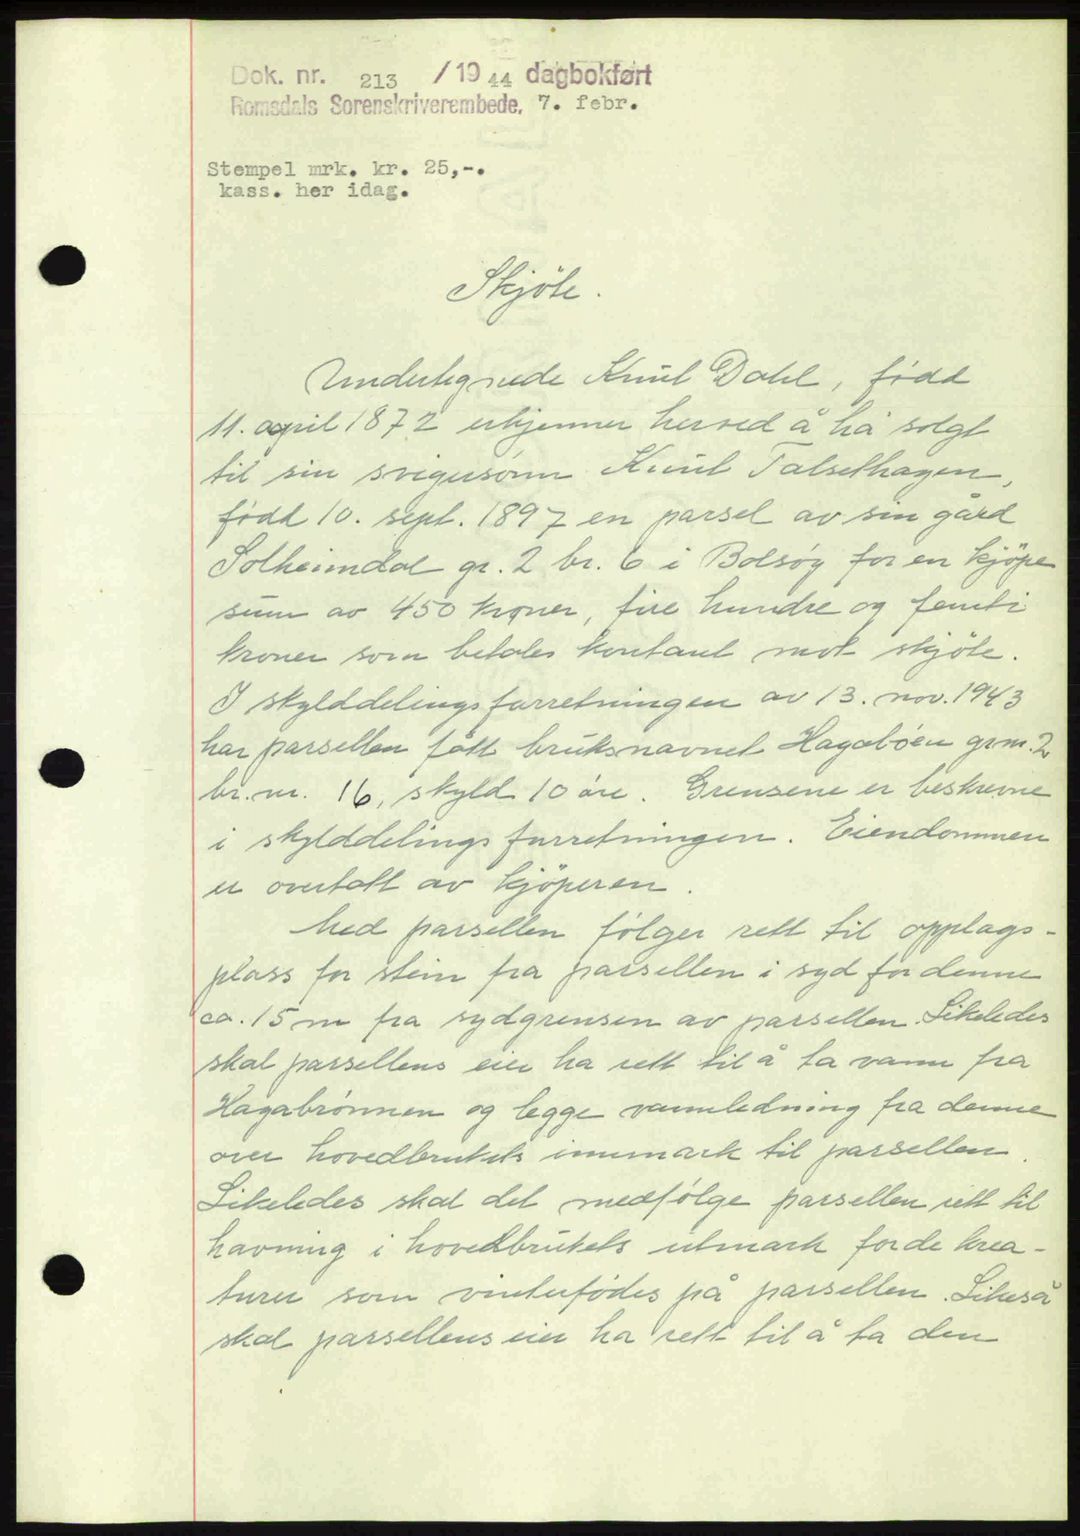 Dok. nr. 213 /1944 dagbokført
Romsdals Sorenskriverembede, 7. febr.
Stempel mrk. kr. 25,-.
kass. her idag.
Skjöte.
Undertegnede Knut Dahl, född
11. april 1872 erkjenner herved å ha solgt
til sin svigersönn Knut Talsethagen,
född 10. sept. 1897 en parsel av sin gård
Solheimdal gr. 2 br. 6 i Bolsöy for en kjöpe
sum av 450 kroner, fire hundre og femti
kroner som betales kontant mot skjöte.
I skylddelingsforretningen av 13. nov. 1943
har parsellen fått bruksnavnet Hagaböen grnr. 2
br. nr. 16, skyld 10 öre. Grensene er beskrevne
i skylddelingsforretningen. Eiendommen
er overtatt av kjöperen.
Med parsellen fölger rett til opplags-
plass for stein fra parsellen i syd for denne
ca. 15 m fra sydgrensen av parsellen. Likeledes
skal parsellens eier ha rett til å ta vann fra
Hagabrönnen og legge vannledning fra denne
over hovedbrukets innmark til parsellen.
Likeledes skal det medfölge parsellen rett til
havning i hovedbrukets utmark for de krea-
turer som vinterfödes på parsellen. Likeså
skal parsellens eier ha rett til å ta den